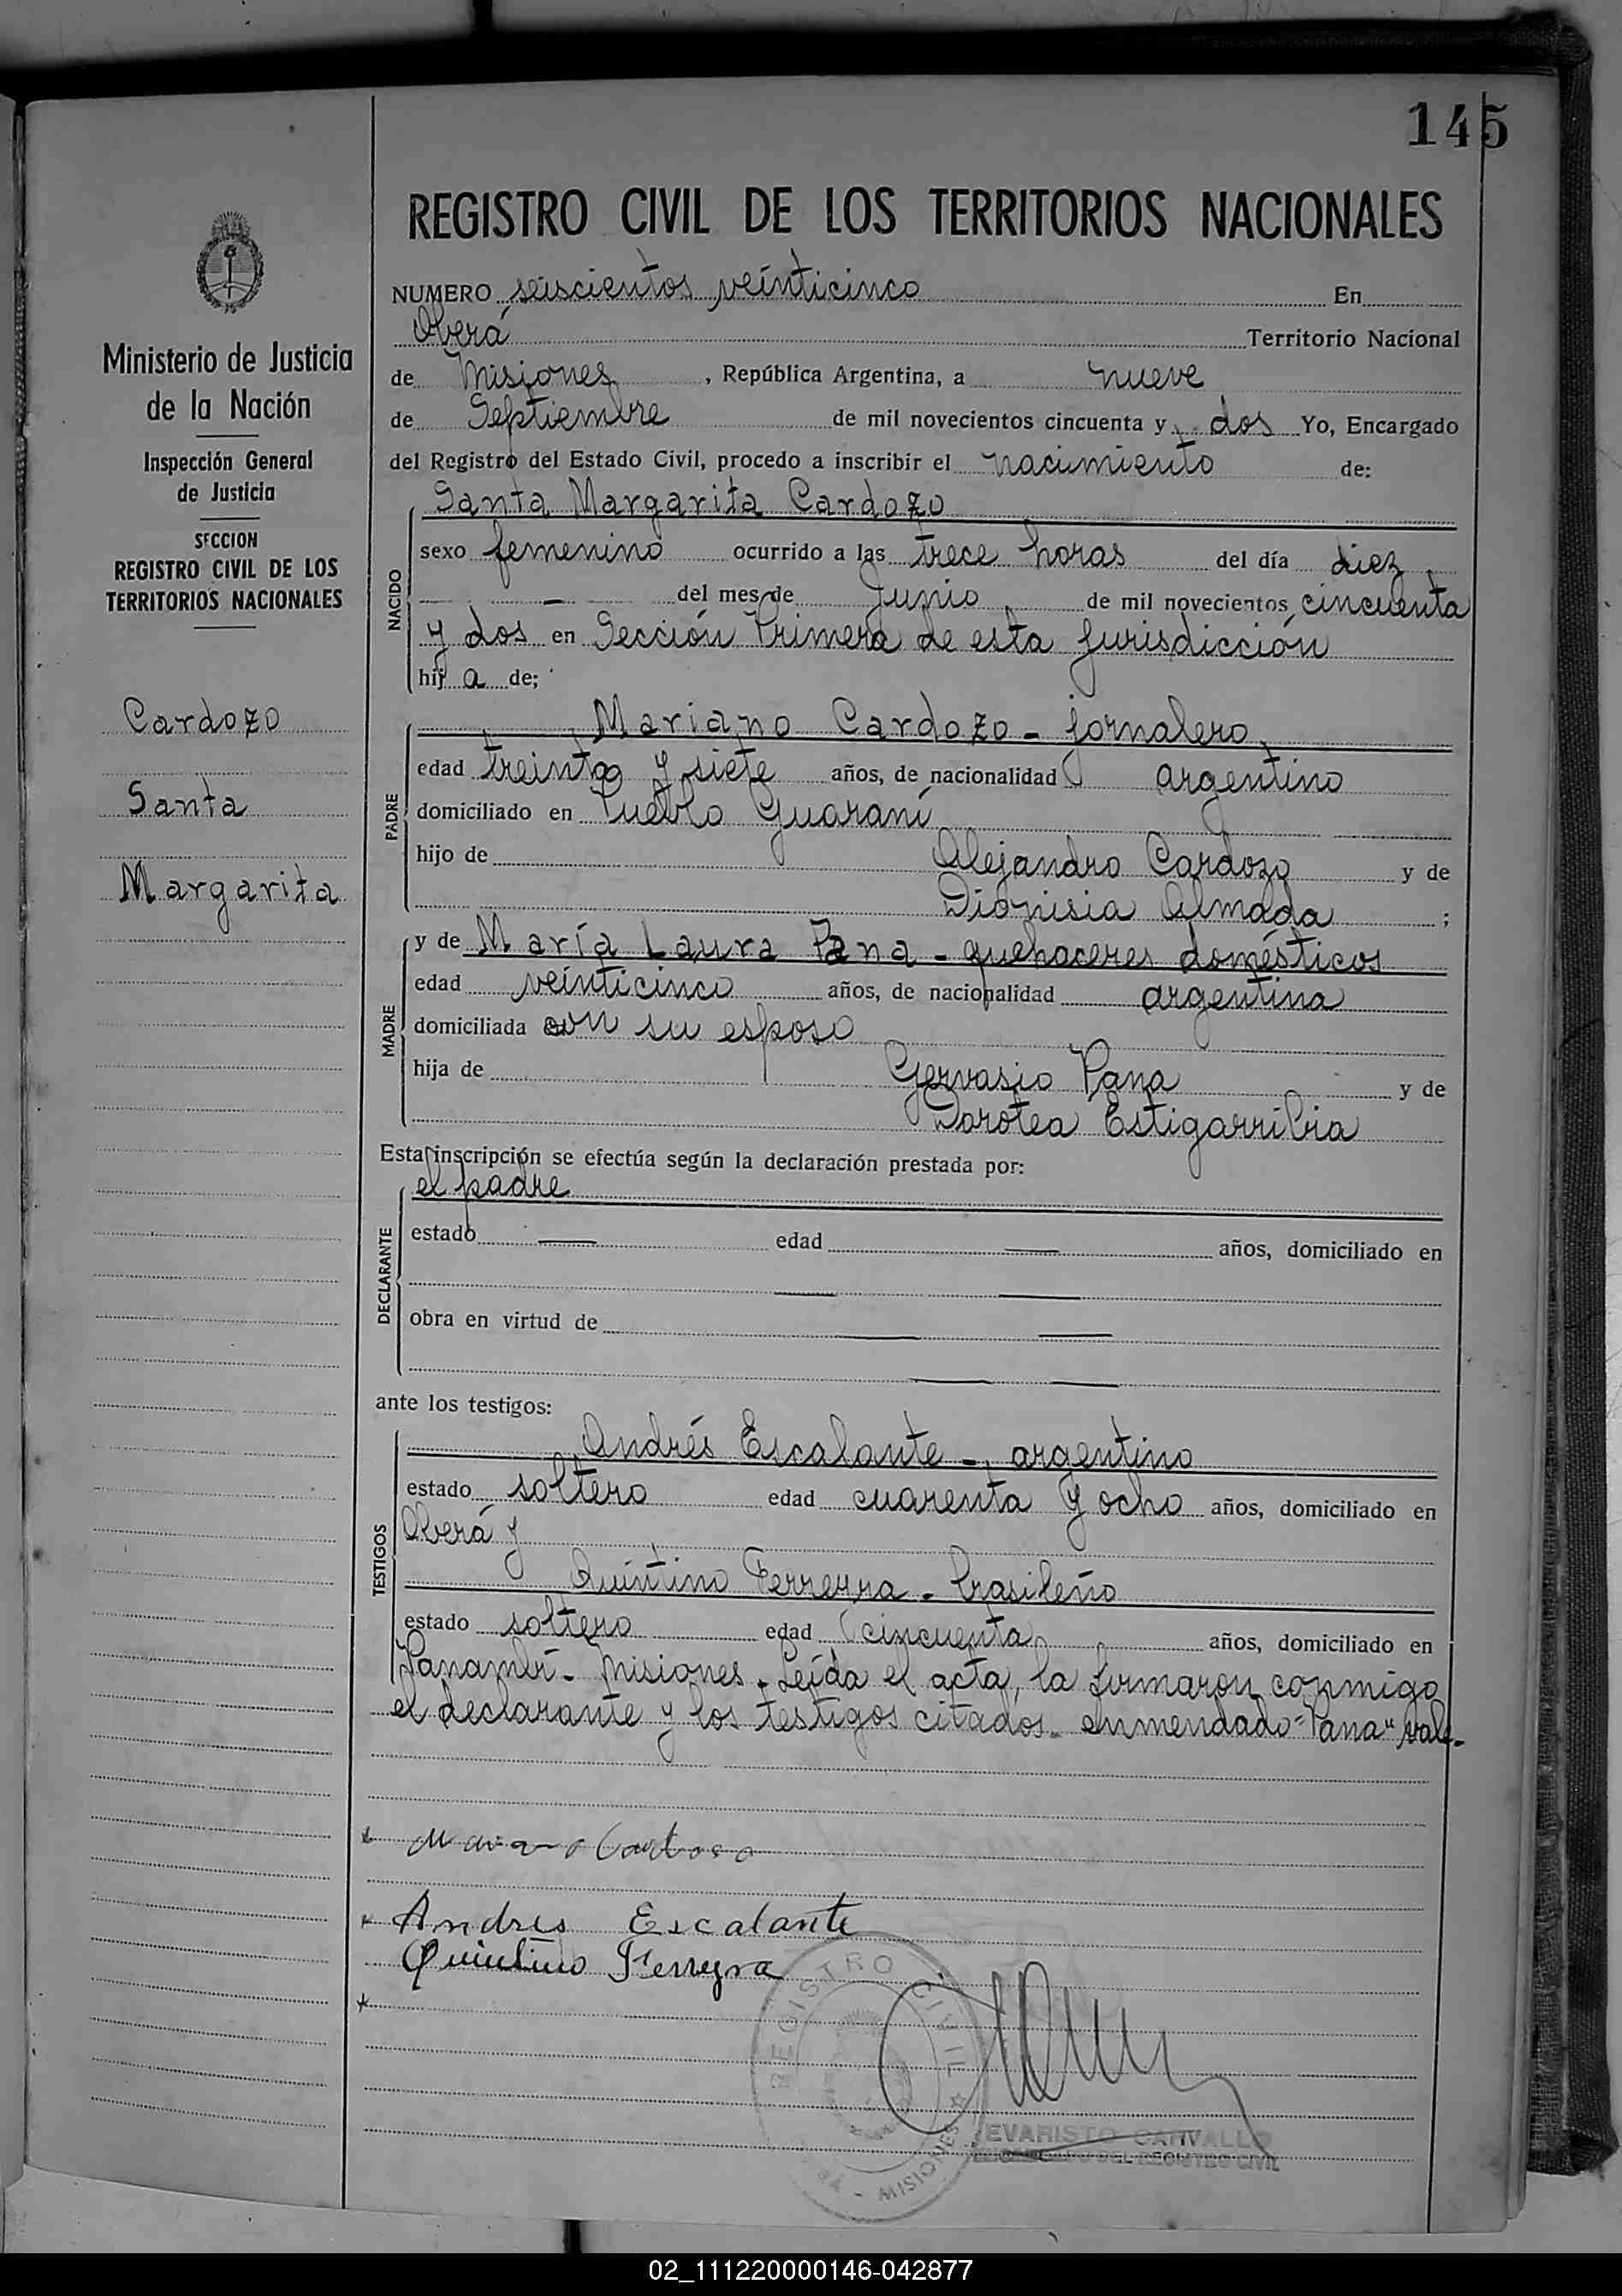 145
REGISTRO CIVIL DE LOS TERRITORIOS NACIONALES
Ministerio de Justicia
de la Nación
Inspección General
de Justicia
SECCION
REGISTRO CIVIL DE LOS
TERRITORIOS NACIONALES
Cardozo
Santa
Margarita
NUMERO seiscientos veinticinco En
Oberá Territorio Nacional
de Misiones, República Argentina, a nueve
de Septiembre de mil novecientos cincuenta y dos Yo, Encargado
del Registro del Estado Civil, procedo a inscribir el nacimiento de:
Santa Margarita Cardozo
NACIDO
sexo femenino ocurrido a las trece horas del día diez
— del mes de Junio de mil novecientos cincuenta
y dos en Sección Primera de esta jurisdicción
hij a de;
PADRE
Mariano Cardozo - jornalero
edad treinta y siete años, de nacionalidad argentino
domiciliado en Pueblo Guaraní
hijo de Alejandro Cardozo y de
Dionisia Almada ;
MADRE
y de María Laura Pana - quehaceres domésticos
edad veinticinco años, de nacionalidad argentina
domiciliada con su esposo
hija de Gervasio Pana y de
Dorotea Estigarribia
Esta inscripción se efectúa según la declaración prestada por:
DECLARANTE
el padre
estado — edad — años, domiciliado en
— —
obra en virtud de — —
— —
ante los testigos:
TESTIGOS
Andrés Escalante - argentino
estado soltero edad cuarenta y ocho años, domiciliado en
Oberá y
Quintino Ferreyra - brasileño
estado soltero edad cincuenta años, domiciliado en
Panambí - Misiones. Leída el acta, la firmaron conmigo
el declarante y los testigos citados - enmendado = "Pana" vale.-
Mariano Cardoso
Andres Escalante
Quintino Ferreyra
REGISTRO CIVIL
MISIONES
EVARISTO CARVALLO
DEL REGISTRO CIVIL
02_111220000146-042877